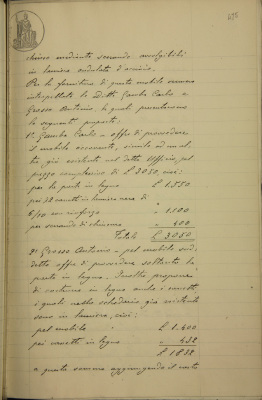 chiuso mediante serranda avvolgibile
in lamiera ondulata d'acciaio.
Per la fornitura di questo mobile vennero
interpellate le Ditte Gamba Carlo e
Grosso Antonio, le quali presentarono
le seguenti proposte:
1º Gamba Carlo - offre di provvedere
il mobile occorrente, simile ad un al-
tro già esistente nel detto Ufficio, pel
prezzo complessivo di £ 3050, cioè:
per la parte in legno £ 1.550
per 32 cassetti in lamiera nera di
6/10 con rinforzo " 1.100
per serranda di chiusura " 400
Totale £ 3.050
2º Grosso Antonio - pel mobile sud-
detto offre di provvedere soltanto la
parte in legno - Inoltre propone
di costruire in legno anche i cassetti
i quali nello schedario già esistente
sono in lamiera, cioè:
pel mobile £ 1.400
pei cassetti in legno " 432
£ 1.832
a questa somma aggiungendo il costo